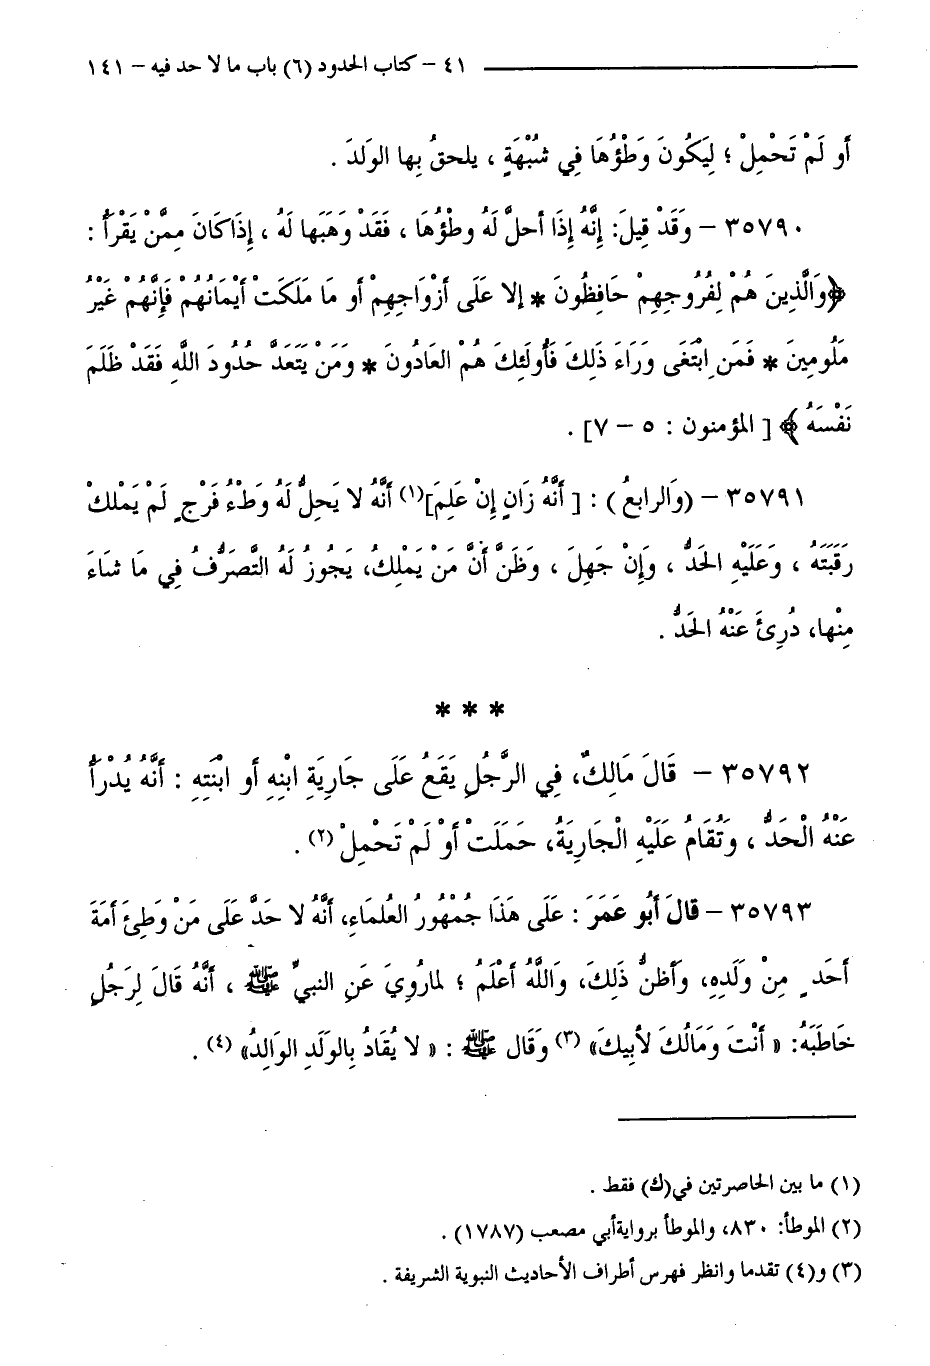 ٤١ – كتاب الحدود (٦) باب ما لا حد فيه – ١٤١
أَو لَمْ تَحْمِلْ ؛ لِيَكُونَ وَطْؤُهَا فِي شُبْهَةٍ ، يلحقُ بِها الوَلدَ .
٣٥٧٩٠ – وَقَدْ قِيلَ: إِنَّهُ إِذَا أحلَّ لَهُ وطْؤُهَا ، فَقَدْ وَهَبَها لَهُ ، إِذَا كَانَ مِمَّنْ يَقْرَأُ :
﴿وَالَّذِينَ هُمْ لِفُرُوجِهِمْ حَافِظُونَ * إلا عَلَى أَزْوَاجِهِمْ أَو مَا مَلَكَتْ أَيْمَانُهُمْ فَإِنَّهُمْ غَيْرُ
مَلُومِينَ * فَمَنِ ابْتَغَى وَرَاءَ ذَلِكَ فَأُولَئِكَ هُمْ العَادُونَ * وَمَنْ يَتَعَدَّ حُدُودَ اللَّهِ فَقَدْ ظَلَمَ
نَفْسَهُ ﴾ [ المؤمنون : ٥ – ٧] .
٣٥٧٩١ – (وَالرابعُ) : [ أَنَّهُ زَانٍ إِنْ عَلِمَ](١) أَنَّهُ لا يَحِلُّ لَهُ وَطْءُ فَرْجٍ لَمْ يَمْلكْ
رَقَبَتَهُ ، وَعَلَيْهِ الحَدُّ ، وَإِنْ جَهِلَ ، وَظَنَّ أَنَّ مَنْ يَمْلِكُ، يَجُوزُ لَهُ التَّصَرُّفُ فِي مَا شَاءَ
مِنْها، دُرِئَ عَنْهُ الحَدُّ .
* * *
٣٥٧٩٢ – قَالَ مَالِكٌ، فِي الرَّجُلِ يَقَعُ عَلَى جَارِيَةِ ابْنِهِ أَو ابْنَتِهِ : أَنَّهُ يُدْرَأُ
عَنْهُ الْحَدُّ ، وَتُقَامُ عَلَيْهِ الْجَارِيَةُ، حَمَلَتْ أَوْ لَمْ تَحْمِلْ (٢) .
٣٥٧٩٣ – قالَ أَبُو عَمَرَ : عَلَى هَذَا جُمْهُورُ العُلمَاءِ، أَنَّهُ لا حَدَّ عَلَى مَنْ وَطِئَ أَمَةَ
أَحَدٍ مِنْ وَلَدِهِ، وَأَظنُّ ذَلِكَ، وَاللَّهُ أَعْلَمُ ؛ لماَرُوِيَ عَنِ النبيِّ ﷺ ، أَنَّهُ قَالَ لِرَجُلٍ
خَاطَبَهُ: « أَنْتَ وَمَالُكَ لأبِيكَ» (٣) وَقَال ﷺ : « لا يُقَادُ بِالوَلَدِ الوَالِدُ» (٤) .
(١) ما بين الحاصرتين في(ك) فقط .
(٢) الموطأ: ٨٣٠، والموطأ بروايةأبي مصعب (١٧٨٧) .
(٣) و(٤) تقدما وانظر فهرس أطراف الأحاديث النبوية الشريفة .